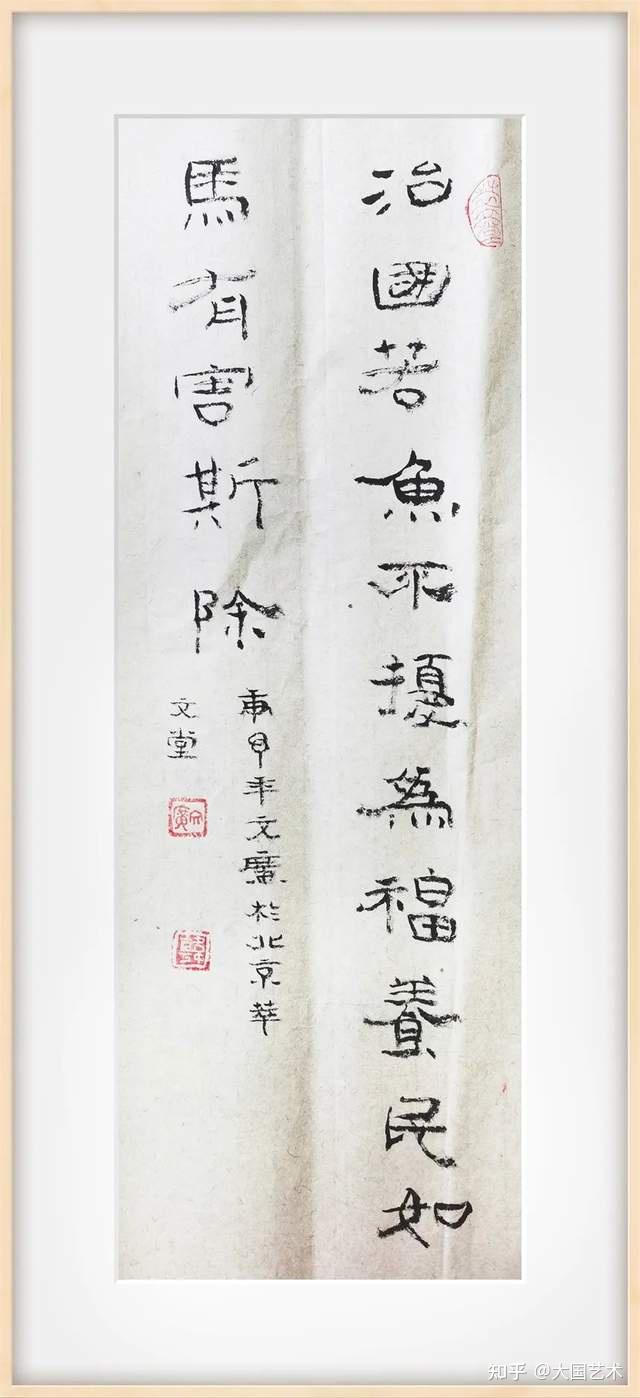 治國若魚不擾為福養民如
馬有害斯除
庚申年文廣於北京華
文堂
知乎 @大国艺术